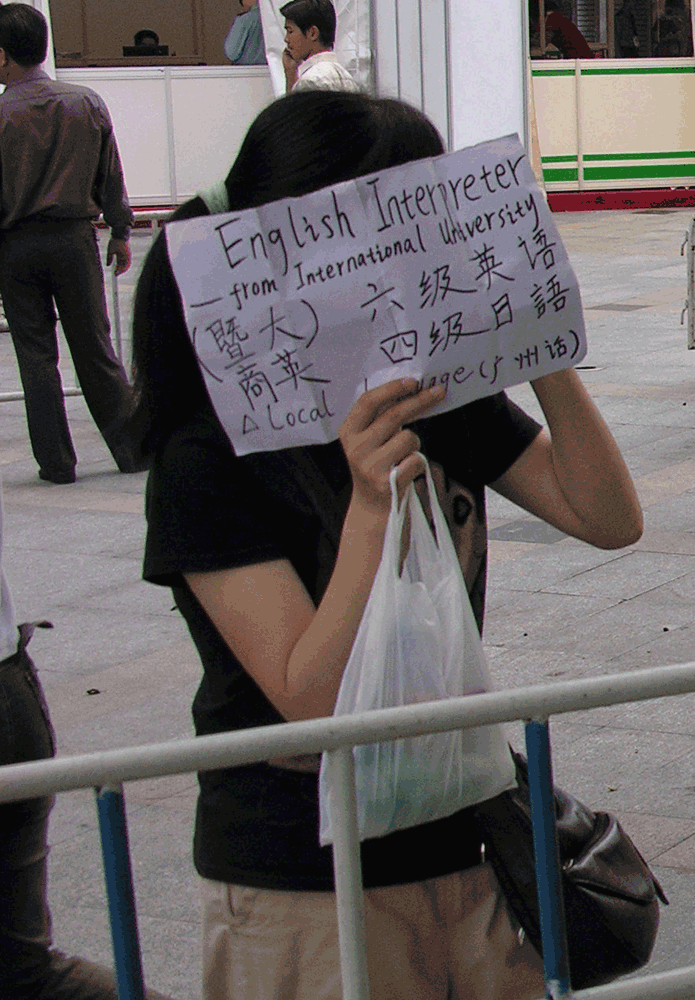 English Interpreter
— from International University
(暨大) 六级英语
商英 四级日語
△ Local (广州话)